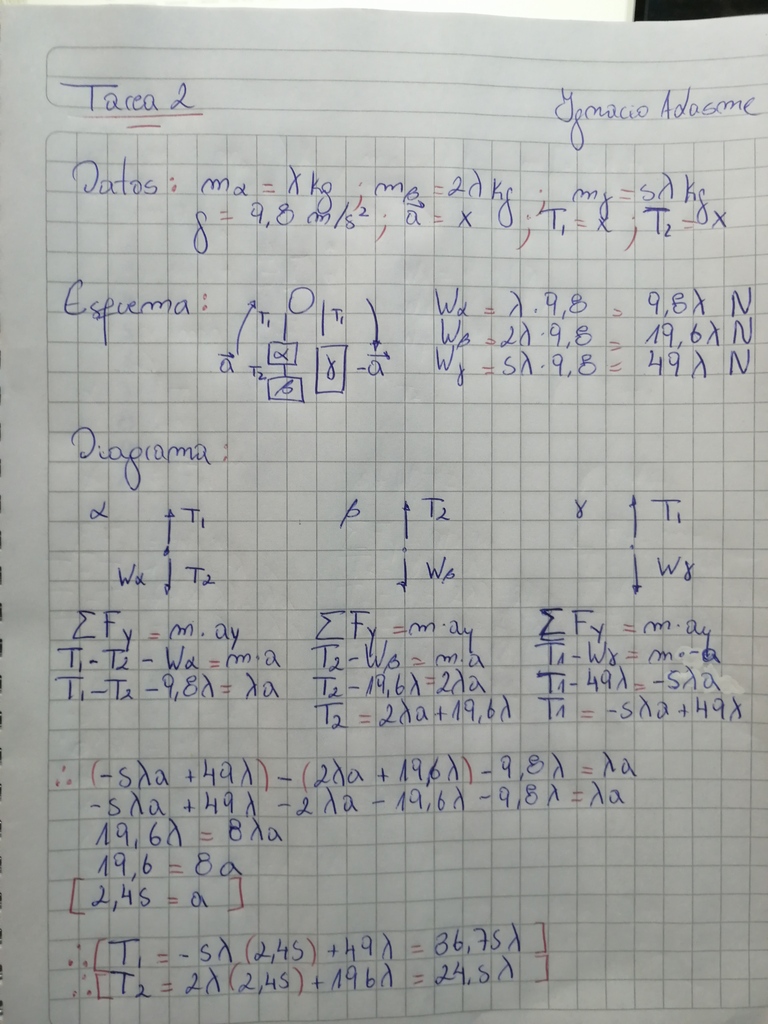 Tarea 2
Ignacio Adasme
Datos: mα = λ kg ; mβ = 2λ kg ; mγ = 5λ kg
g = 9,8 m/s² ; a⃗ = x ; T₁ = x ; T₂ = x
Esquema:
T₁ T₁
a⃗ α γ -a⃗
T₂ β
Wα = λ·9,8 = 9,8λ N
Wβ = 2λ·9,8 = 19,6λ N
Wγ = 5λ·9,8 = 49λ N
Diagrama:
α T₁
Wα T₂
ΣFy = m·ay
T₁-T₂-Wα = m·a
T₁-T₂-9,8λ = λa
β T₂
Wβ
ΣFy = m·ay
T₂-Wβ = m·a
T₂-19,6λ = 2λa
T₂ = 2λa+19,6λ
γ T₁
Wγ
ΣFy = m·ay
T₁-Wγ = m·-a
T₁-49λ = -5λa
T₁ = -5λa+49λ
∴ (-5λa + 49λ) - (2λa + 19,6λ) - 9,8λ = λa
-5λa + 49λ - 2λa - 19,6λ - 9,8λ = λa
19,6λ = 8λa
19,6 = 8a
[2,45 = a]
∴ [T₁ = -5λ(2,45) + 49λ = 36,75λ]
∴ [T₂ = 2λ(2,45) + 196λ = 24,5λ]